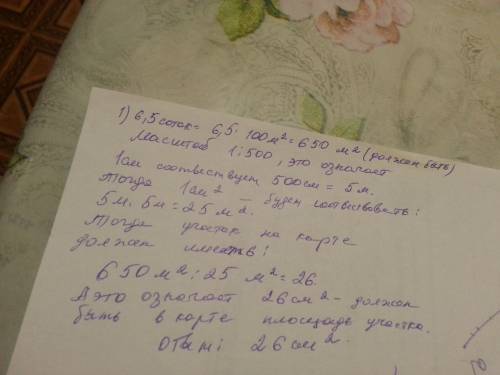 1) 6,5 соток = 6,5 · 100 м² = 650 м² (должен быть)
Масштаб 1:500, это означает
1 см соотвествует 500 см = 5 м.
Тогда 1 см² — будет соотвествовать:
5 м · 5 м = 25 м².
Тогда участок на карте
должен иметь:
650 м² : 25 м² = 26.
А это означает 26 см² - должен
быть в карте площадь участка.
Ответ: 26 см².